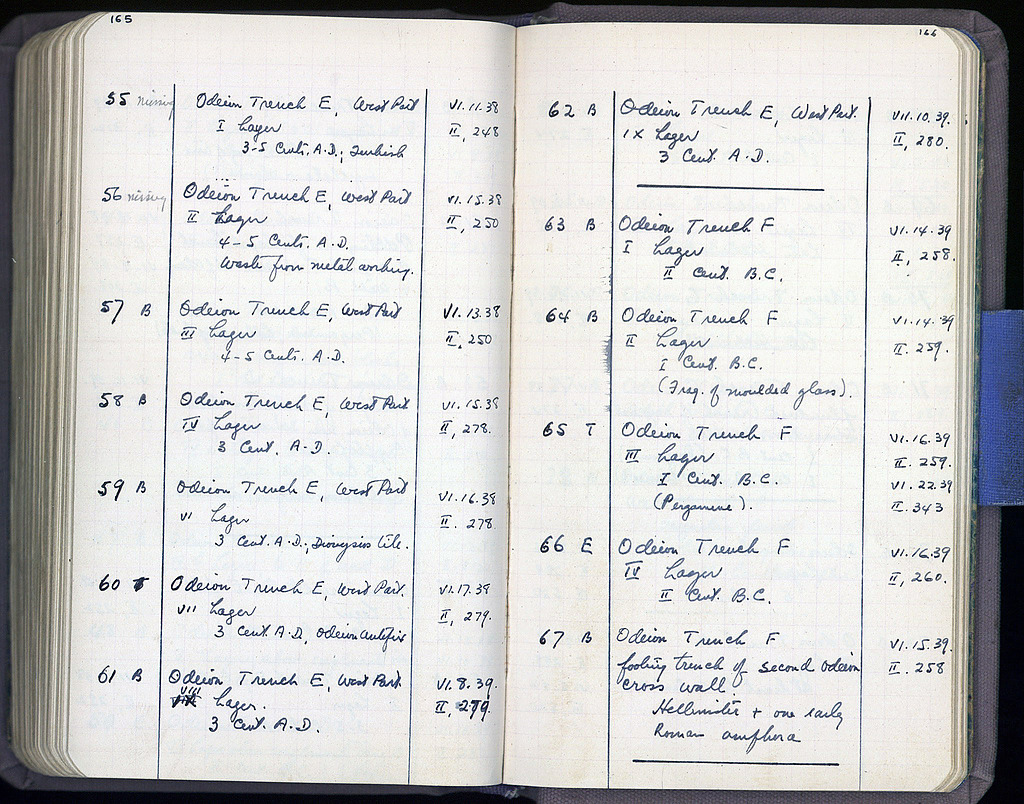 165
55 missing Odeion Trench E, West Part VI.11.38
I Lager II, 248
3-5 Cents. A.D., Turkish
56 missing Odeion Trench E, West Part VI.15.38
II Lager II, 250
4-5 Cents. A.D.
Waste from metal working.
57 B Odeion Trench E, West Part VI.13.38
III Lager II, 250
4-5 Cents. A.D.
58 B Odeion Trench E, West Part VI.15.38
IV Lager II, 278.
3 Cent. A.D.
59 B Odeion Trench E, West Part VI.16.38
VI Lager II. 278
3 Cent. A.D., Dionysios tile.
60 T Odeion Trench E, West Part. VI.17.39
VII Lager II, 279.
3 Cent. A.D, Odeion antefix
61 B Odeion Trench E, West Part. VI.8.39.
VIII Lager. II, 279.
3 Cent. A.D.
166
62 B Odeion Trench E, West Part. VII.10.39.
IX Lager II, 280.
3 Cent. A.D.
63 B Odeion Trench F VI.14.39
I Lager II, 258.
II Cent. B.C.
64 B Odeion Trench F VI.14.39
II Lager II. 259.
I Cent. B.C.
(Frag. of moulded glass).
65 T Odeion Trench F VI.16.39
III Lager II. 259.
I Cent. B.C. VI.22.39
(Pergamene). II.343
66 E Odeion Trench F VI.16.39
IV Lager II, 260.
II Cent. B.C.
67 B Odeion Trench F VI.15.39.
footing trench of second Odeion II. 258
cross wall.
Hellenistic + one early
Roman amphora